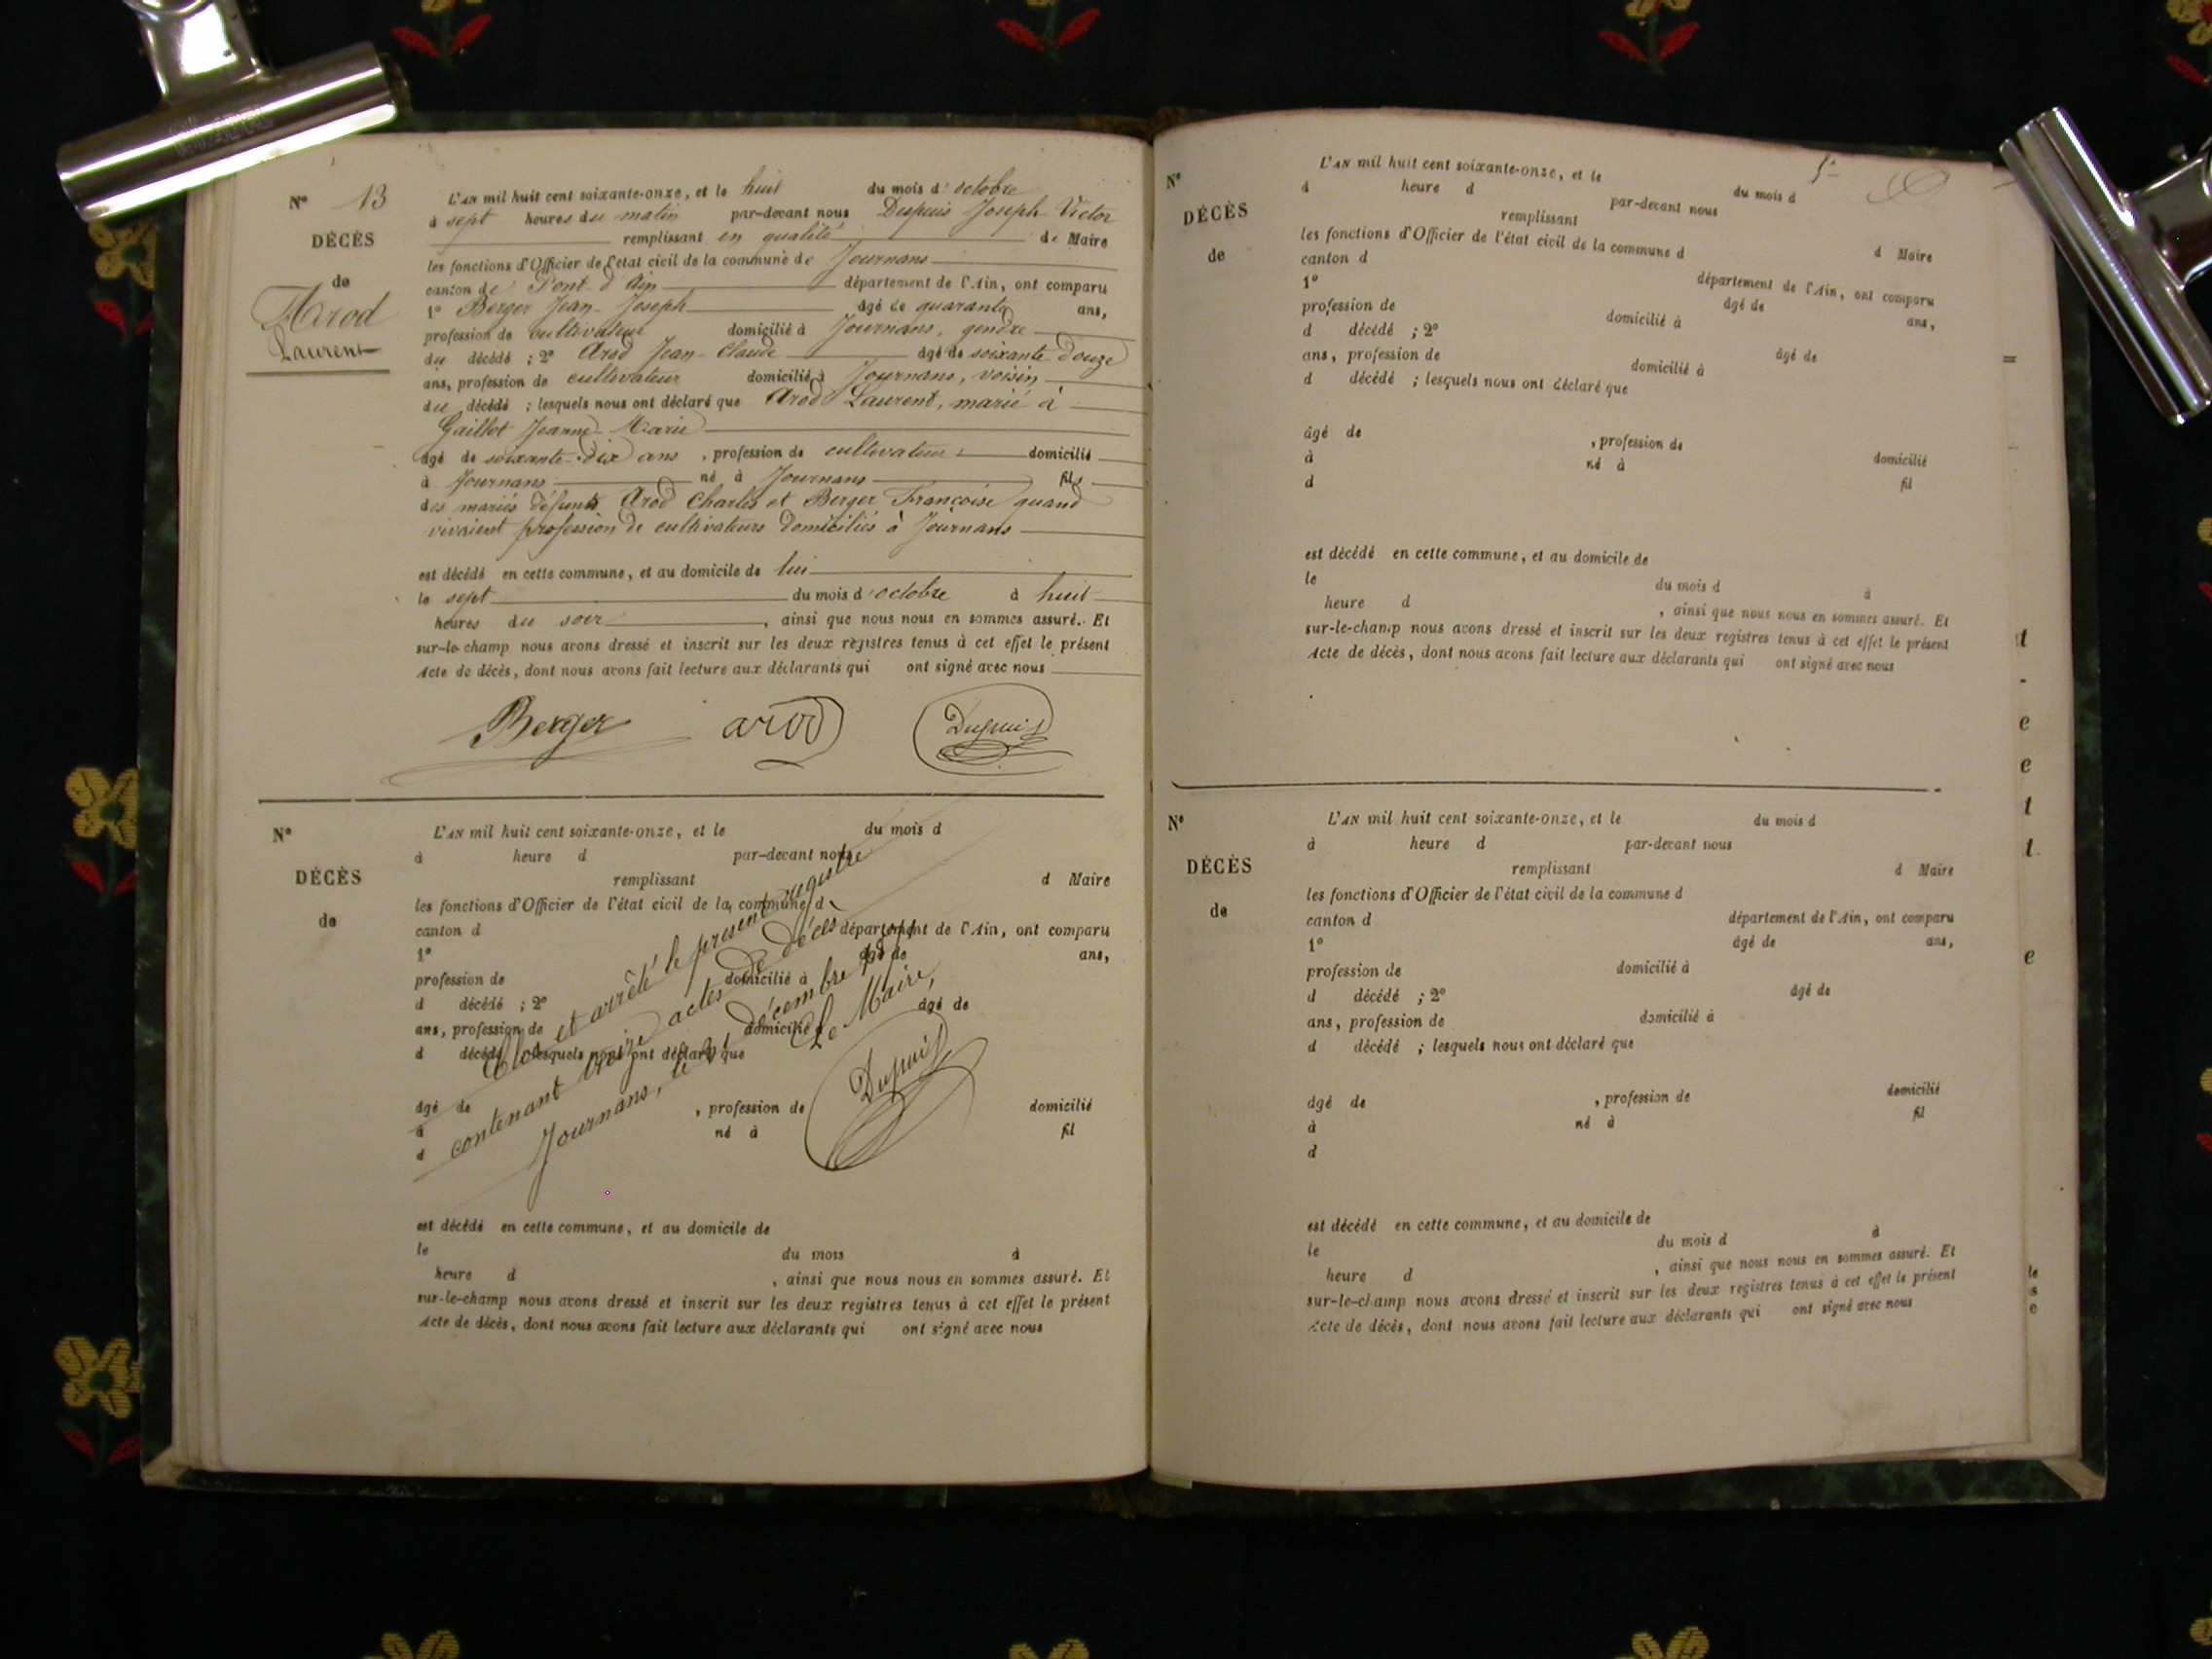 N° 13
DÉCÈS
de
Arod
Laurent
L'AN mil huit cent soixante-onze, et le huit du mois d'octobre
à sept heures du matin par-devant nous Dupuis Joseph Victor
remplissant en qualité de Maire
les fonctions d'Officier de l'état civil de la commune de Journans
canton de Pont d'Ain département de l'Ain, ont comparu
1° Berger Jean-Joseph âgé de quarante ans,
profession de cultivateur domicilié à Journans, gendre
du décédé ; 2° Arod Jean-Claude âgé de soixante-douze
ans, profession de cultivateur domicilié à Journans, voisin
du décédé ; lesquels nous ont déclaré que Arod Laurent, marié à
Gaillot Jeanne-Marie
âgé de soixante-dix ans , profession de cultivateur domicilié
à Journans né à Journans fils
des mariés défunts Arod Charles et Berger Françoise quand
vivaient profession de cultivateurs domiciliés à Journans
est décédé en cette commune, et au domicile de lui
le sept du mois d'octobre à huit
heures du soir , ainsi que nous nous en sommes assuré. Et
sur-le-champ nous avons dressé et inscrit sur les deux registres tenus à cet effet le présent
Acte de décès, dont nous avons fait lecture aux déclarants qui ont signé avec nous
Berger arod Dupuis
N°
DÉCÈS
de
L'AN mil huit cent soixante-onze, et le du mois d
à heure d par-devant nous
remplissant d Maire
les fonctions d'Officier de l'état civil de la commune d
canton d département de l'Ain, ont comparu
1° âgé de ans,
profession de domicilié à
d décédé ; 2° âgé de
ans, profession de domicilié à
d décédé ; lesquels nous ont déclaré que
âgé de , profession de domicilié
à né à fil
d
Clos et arrêté le présent registre
contenant treize actes de décès
Journans, le 31 décembre 1871
Le Maire,
Dupuis
est décédé en cette commune, et au domicile de
le du mois à
heure d , ainsi que nous nous en sommes assuré. Et
sur-le-champ nous avons dressé et inscrit sur les deux registres tenus à cet effet le présent
Acte de décès, dont nous avons fait lecture aux déclarants qui ont signé avec nous
N°
DÉCÈS
de
L'AN mil huit cent soixante-onze, et le du mois d
à heure d par-devant nous
remplissant d Maire
les fonctions d'Officier de l'état civil de la commune d
canton d département de l'Ain, ont comparu
1° âgé de ans,
profession de domicilié à
d décédé ; 2° âgé de
ans, profession de domicilié à
d décédé ; lesquels nous ont déclaré que
âgé de , profession de domicilié
à né à fil
d
est décédé en cette commune, et au domicile de
le du mois d à
heure d , ainsi que nous nous en sommes assuré. Et
sur-le-champ nous avons dressé et inscrit sur les deux registres tenus à cet effet le présent
Acte de décès, dont nous avons fait lecture aux déclarants qui ont signé avec nous
N°
DÉCÈS
de
L'AN mil huit cent soixante-onze, et le du mois d
à heure d par-devant nous
remplissant d Maire
les fonctions d'Officier de l'état civil de la commune d
canton d département de l'Ain, ont comparu
1° âgé de ans,
profession de domicilié à
d décédé ; 2° âgé de
ans, profession de domicilié à
d décédé ; lesquels nous ont déclaré que
âgé de , profession de domicilié
à né à fil
d
est décédé en cette commune, et au domicile de
le du mois d à
heure d , ainsi que nous nous en sommes assuré. Et
sur-le-champ nous avons dressé et inscrit sur les deux registres tenus à cet effet le présent
Acte de décès, dont nous avons fait lecture aux déclarants qui ont signé avec nous